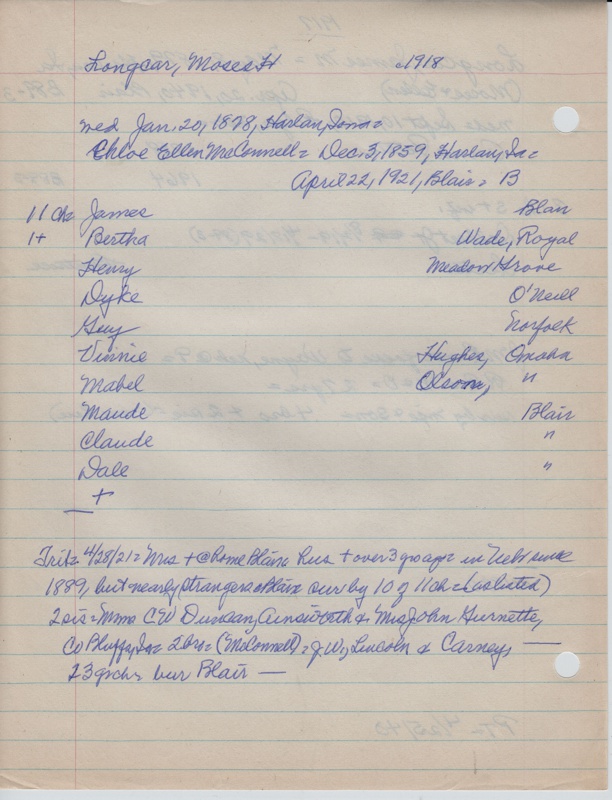 Longcar, Moses H c1918
med Jan. 20, 1878, Harlan, Iowa=
Chloe Ellen McConnell= Dec. 3, 1859, Harlan, Ia=
April 22, 1921, Blair= B
11 Chs James Blair
1+ Bertha Wade, Royal
Henry Meadow Grove
Dyke O'Neill
Guy Norfolk
Vinnie Hughes, Omaha
Mabel Olson, "
Maude Blair
Claude "
Dale "
+
Trib= 4/28/21= Mrs + @ home Blair= Hus + over 3 yrs ago= in Neb since
1889, but nearly strangers @ Blair= sur by 10 of 11 ch= (as listed)
2 sis= Mmes C W Duncan, Ainsworth & Mrs John Gurnette,
Co Bluffs, Ia= 2 bro= (McConnell)= J.W., Lincoln & Carney, —
23 grch= bur Blair —